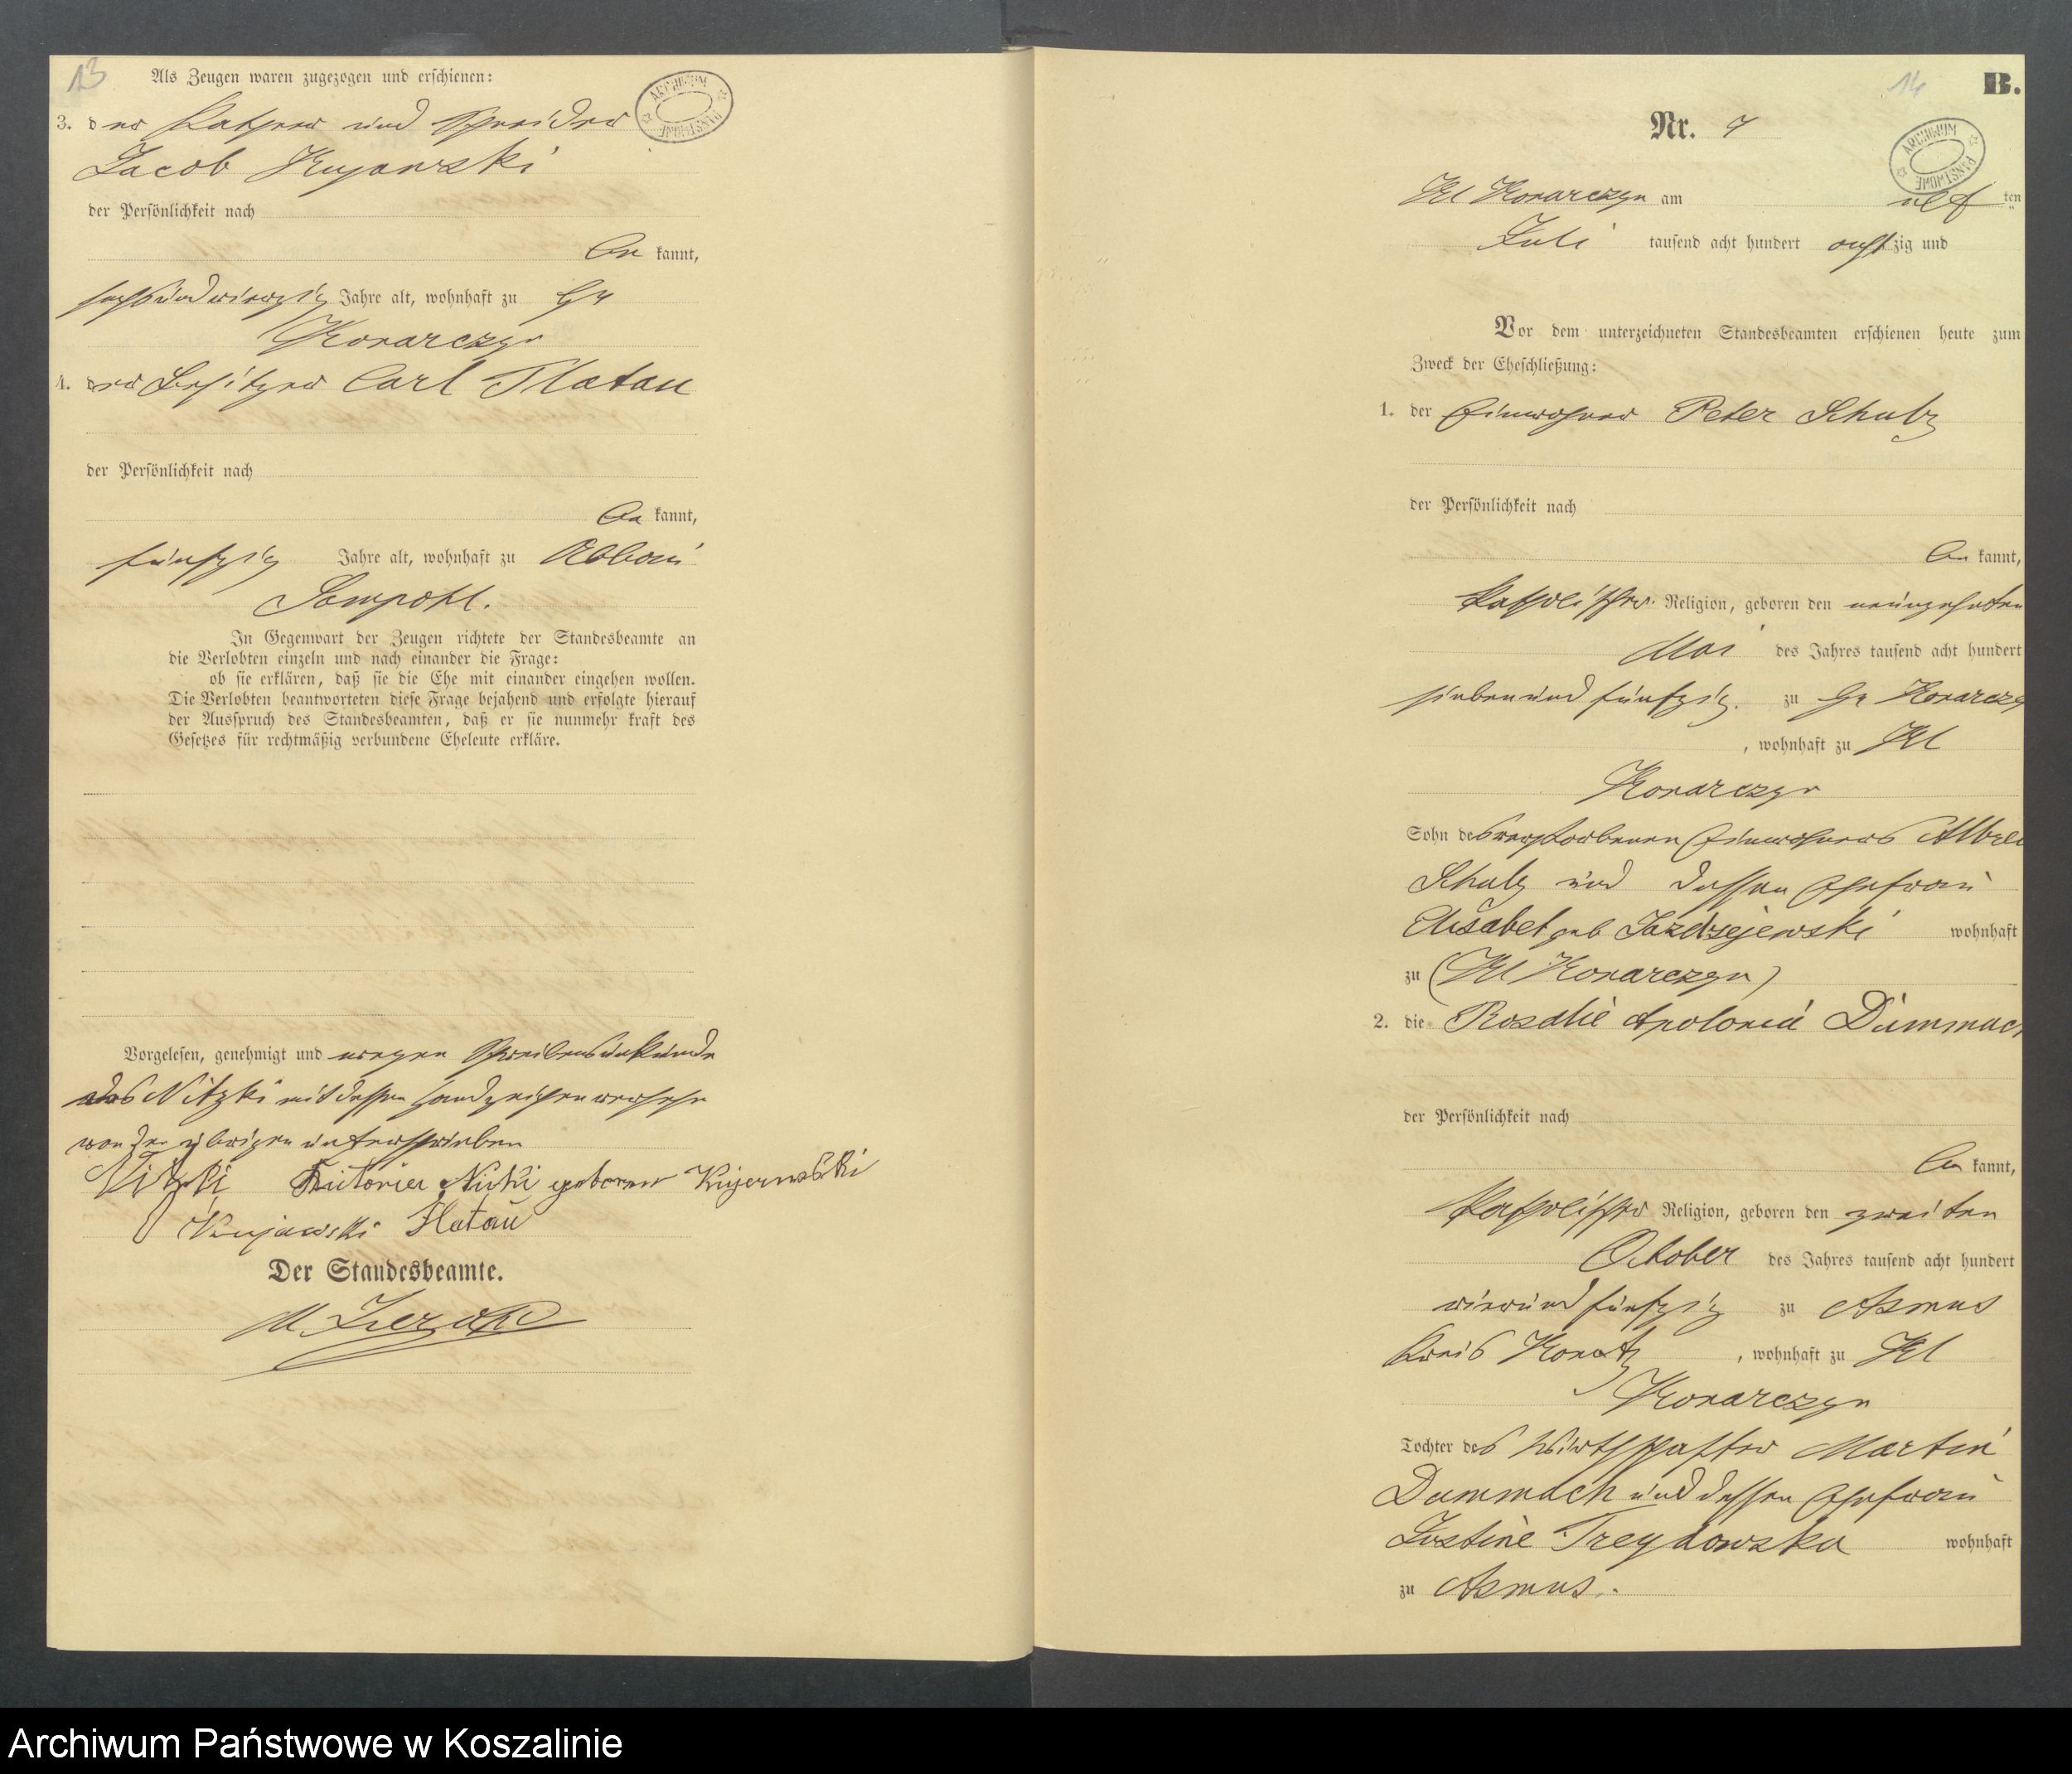 13
Als Zeugen waren zugezogen und erschienen:
ARCHIWUM PAŃSTWOWE
3. der Kathner und Schneider
Jacob Kujawski
der Persönlichkeit nach
be kannt,
sechsundvierzig Jahre alt, wohnhaft zu Gr
Konarczyn
4. der Besitzer Carl Flatau
der Persönlichkeit nach
be kannt,
fünfzig Jahre alt, wohnhaft zu Abbau
Sampohl.
In Gegenwart der Zeugen richtete der Standesbeamte an
die Verlobten einzeln und nach einander die Frage:
ob sie erklären, daß sie die Ehe mit einander eingehen wollen.
Die Verlobten beantworteten diese Frage bejahend und erfolgte hierauf
der Ausspruch des Standesbeamten, daß er sie nunmehr kraft des
Gesetzes für rechtmäßig verbundene Eheleute erkläre.
Vorgelesen, genehmigt und wegen Schreibensunkunde
des Nitzki mit dessen Handzeichen versehen
von den übrigen unterschrieben
Nitzki geboren
Kujawski Flatau
Der Standesbeamte.
14
B.
Nr. 7
ARCHIWUM PAŃSTWOWE
Kl Konarczyn am elf ten
Juli tausend acht hundert acht zig und
Vor dem unterzeichneten Standesbeamten erschienen heute zum
Zweck der Eheschließung:
1. der Einwohner Peter Schulz
der Persönlichkeit nach
be kannt,
katholischer Religion, geboren den neunzehnten
Mai des Jahres tausend acht hundert
siebenundfünfzig. zu Gr Konarczyn
, wohnhaft zu Kl
Konarczyn
Sohn des verstorbenen Einwohners
Schulz und dessen Ehefrau
Elisabet geb Jazdzejewski wohnhaft
zu (Kl Konarczyn)
2. die Rosalie Apolonia Dummach
der Persönlichkeit nach
be kannt,
katholischer Religion, geboren den zweiten
October des Jahres tausend acht hundert
vierundfünfzig zu Asmus
Kreis Konitz, wohnhaft zu Kl
Konarczyn
Tochter des Wirthschafter Martin
Dummach und dessen Ehefrau
Justine wohnhaft
zu Asmus.
Archiwum Państwowe w Koszalinie